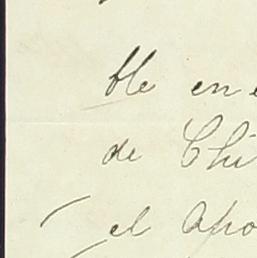 ble en e
de Chi
el Apo